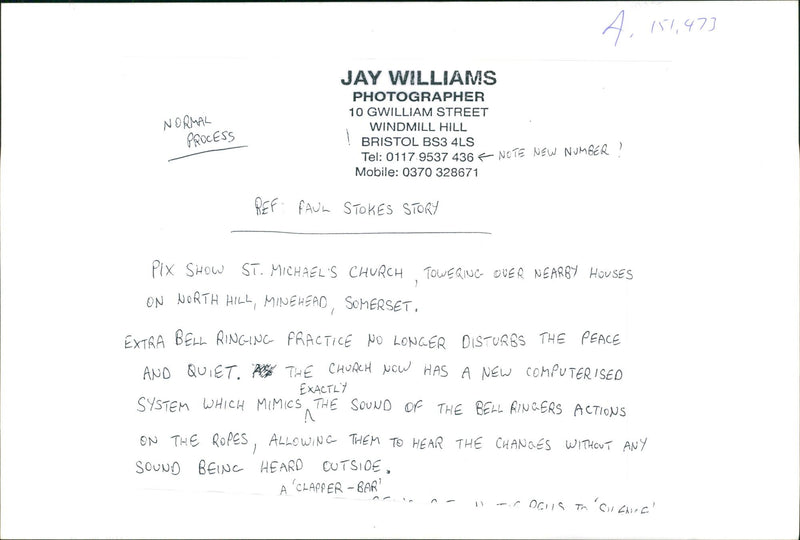 A. 151,473
JAY WILLIAMS
PHOTOGRAPHER
10 GWILLIAM STREET
WINDMILL HILL
BRISTOL BS3 4LS
Tel: 0117 9537 436 ← NOTE NEW NUMBER !
Mobile: 0370 328671
NORMAL
PROCESS
REF: PAUL STOKES STORY
PIX SHOW ST. MICHAEL'S CHURCH, TOWERING OVER NEARBY HOUSES
ON NORTH HILL, MINEHEAD, SOMERSET.
EXTRA BELL RINGING PRACTICE NO LONGER DISTURBS THE PEACE
AND QUIET. THE CHURCH NOW HAS A NEW COMPUTERISED
EXACTLY
SYSTEM WHICH MIMICS THE SOUND OF THE BELL RINGERS ACTIONS
ON THE ROPES, ALLOWING THEM TO HEAR THE CHANGES WITHOUT ANY
SOUND BEING HEARD OUTSIDE.
A 'CLAPPER-BAR'
BELLS TO 'SILENCE'